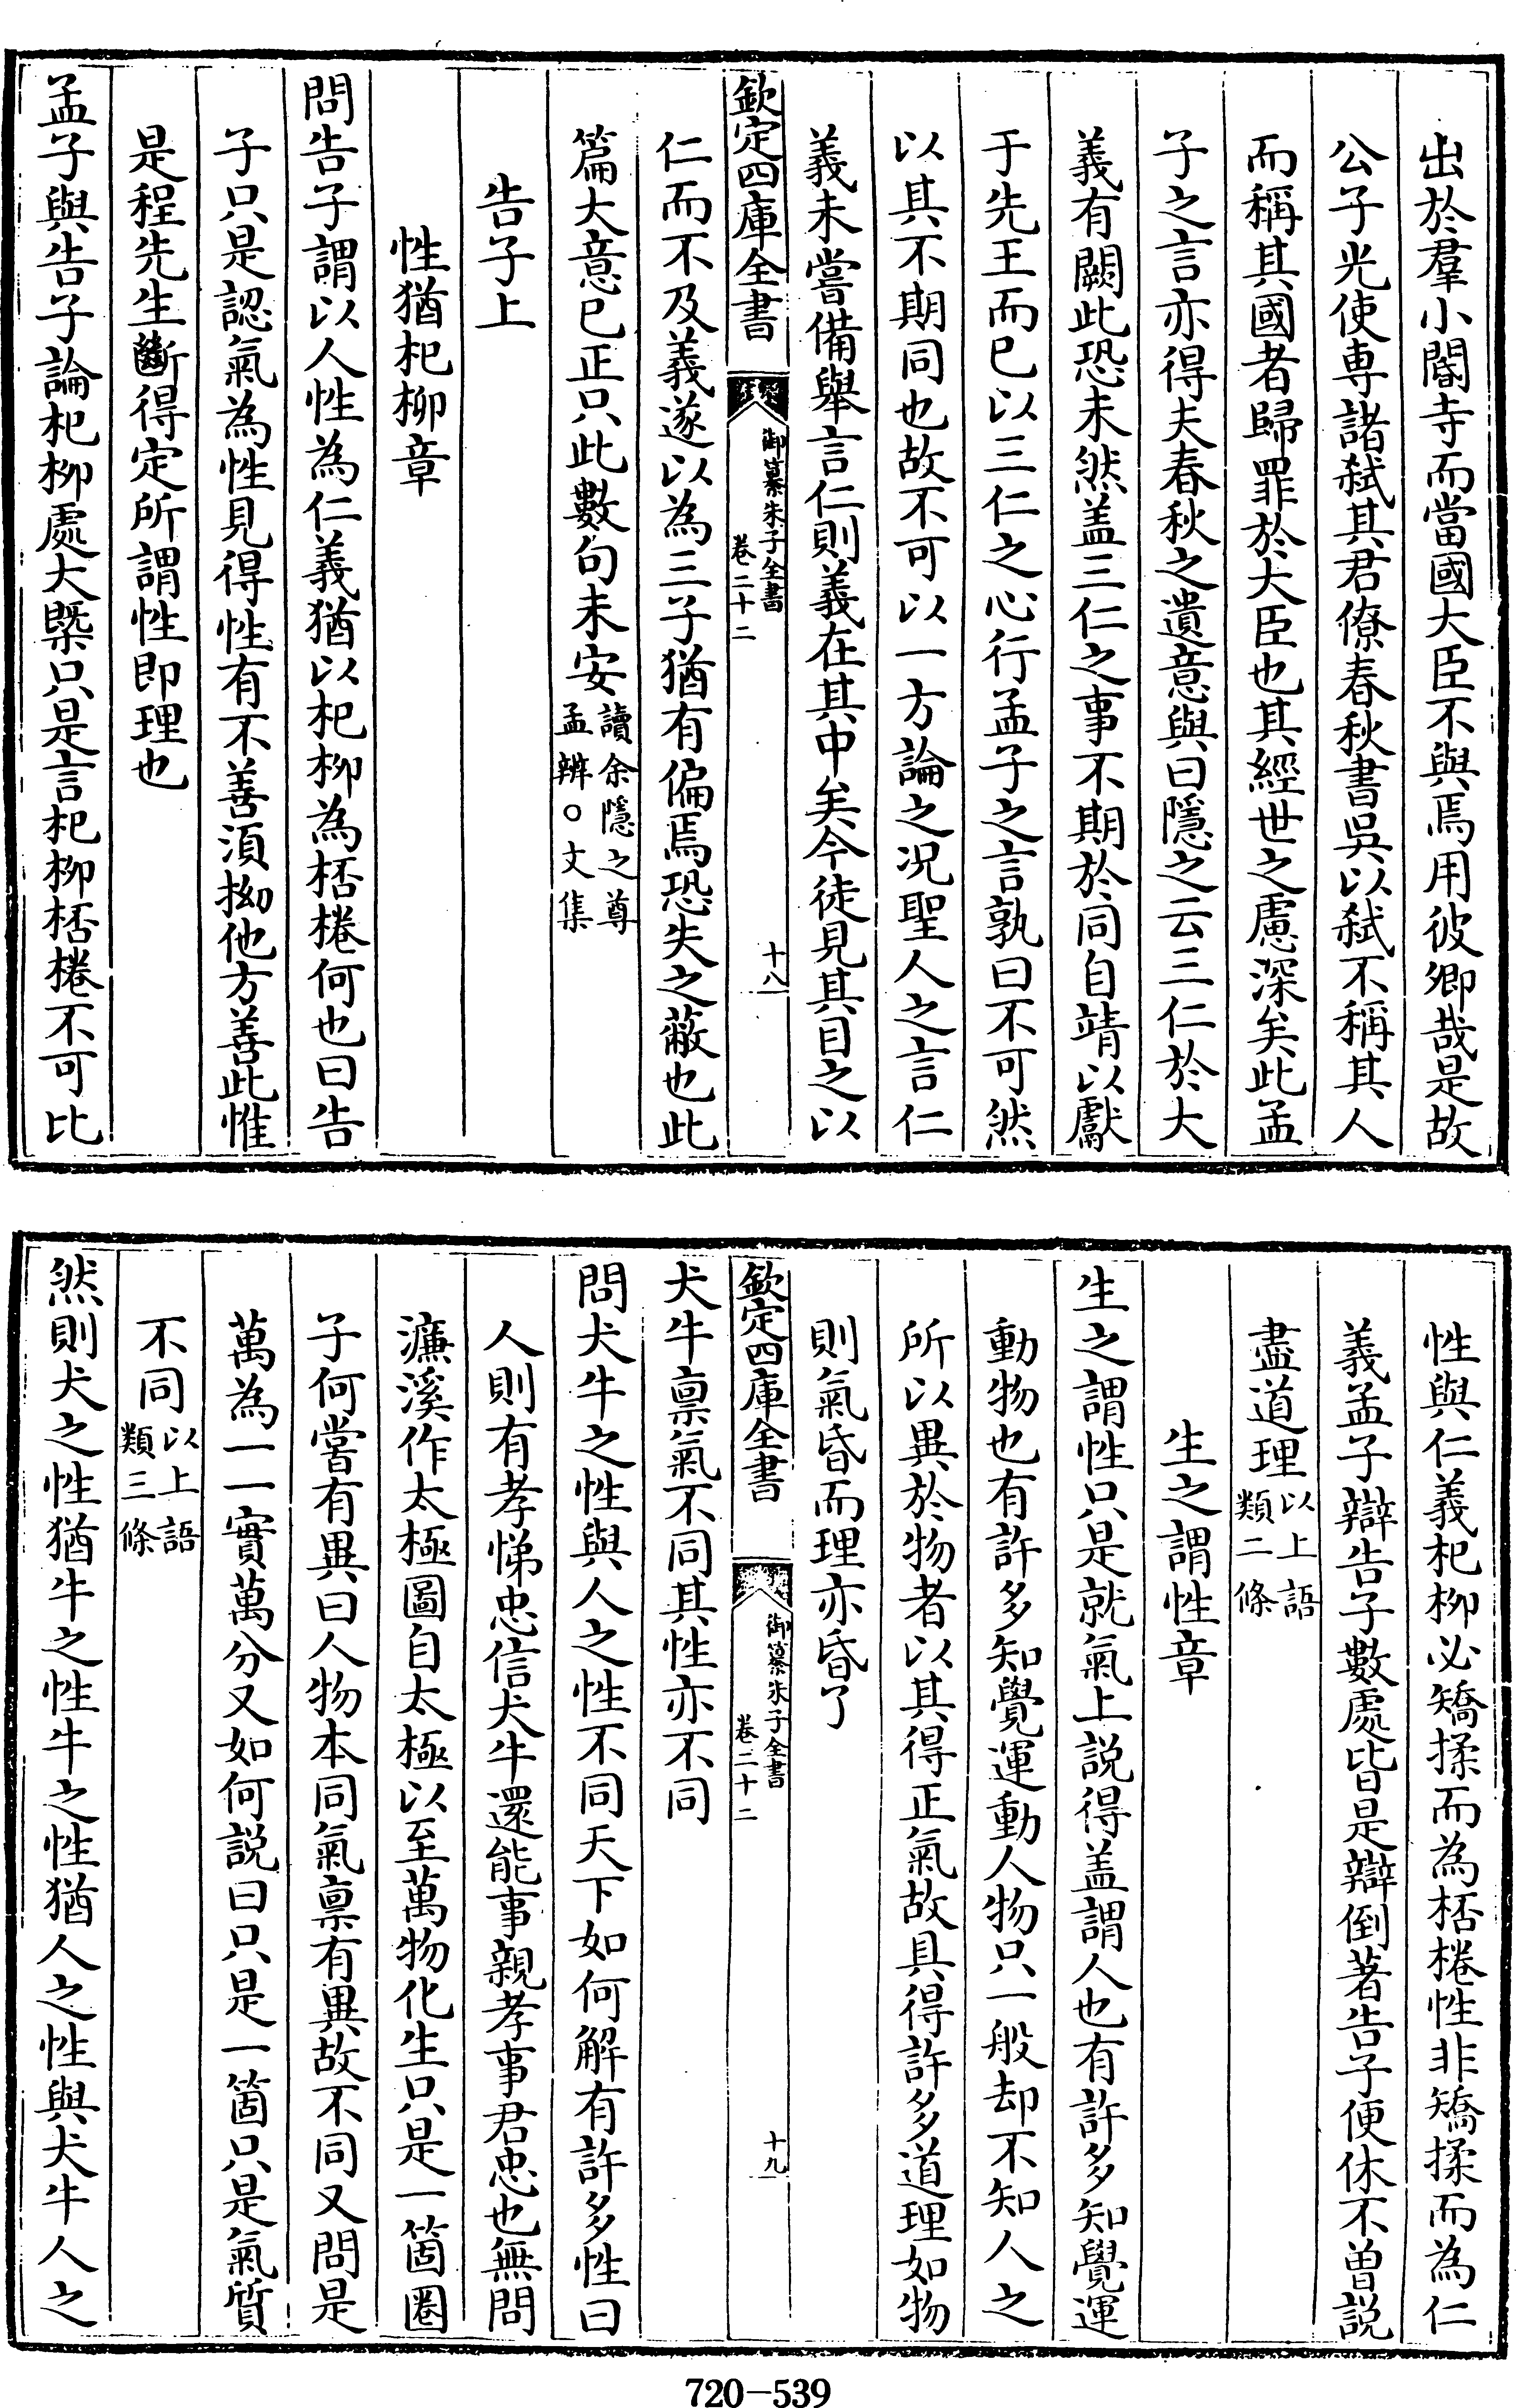 出於羣小閽寺而當國大臣不與焉用彼卿哉是故
公子光使専諸弑其君僚春秋書吳以弑不稱其人
而稱其國者歸罪於大臣也其經世之慮深矣此孟
子之言亦得夫春秋之遺意與曰隱之云三仁於大
義有闕此恐未然盖三仁之事不期於同自靖以獻
于先王而已以三仁之心行孟子之言孰曰不可然
以其不期同也故不可以一方論之况聖人之言仁
義未嘗備舉言仁則義在其中矣今徒見其目之以
欽定四庫全書
御纂朱子全書
卷二十二
十八
仁而不及義遂以為三子猶有偏焉恐失之蔽也此
篇大意已正只此數句未安讀余隱之尊孟辨○文集
告子上
性猶杞柳章
問告子謂以人性為仁義猶以杞柳為桮棬何也曰告
子只是認氣為性見得性有不善須拗他方善此惟
是程先生斷得定所謂性即理也
孟子與告子論杞柳處大槩只是言杞柳桮棬不可比
性與仁義杞柳必矯揉而為桮棬性非矯揉而為仁
義孟子辯告子數處皆是辯倒著告子便休不曾説
盡道理以上語類二條
生之謂性章
生之謂性只是就氣上説得盖謂人也有許多知覺運
動物也有許多知覺運動人物只一般却不知人之
所以異於物者以其得正氣故具得許多道理如物
則氣昏而理亦昏了
欽定四庫全書
御纂朱子全書
卷二十二
十九
犬牛禀氣不同其性亦不同
問犬牛之性與人之性不同天下如何解有許多性曰
人則有孝悌忠信犬牛還能事親孝事君忠也無問
濂溪作太極圖自太極以至萬物化生只是一箇圈
子何嘗有異曰人物本同氣禀有異故不同又問是
萬為一一實萬分又如何説曰只是一箇只是氣質
不同以上語類三條
然則犬之性猶牛之性牛之性猶人之性與犬牛人之
720－539